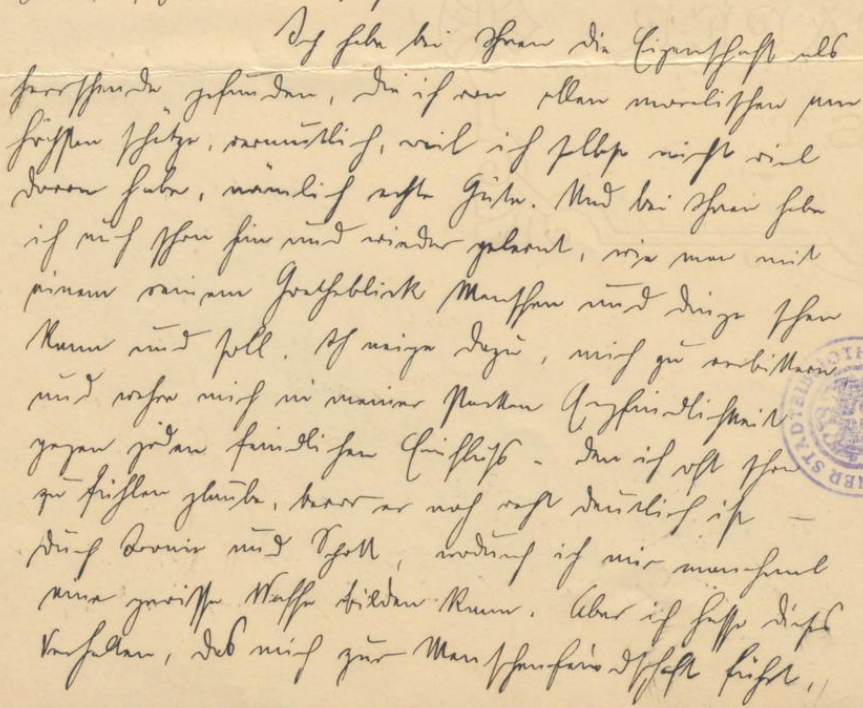 Ich habe bei Ihnen die Eigenschaft als
herrschende gefunden, die ich von allen moralischen am
höchsten schätze, vermutlich, weil ich selbst nicht viel
davon habe, nämlich echte Güte. Und bei Ihnen habe
ich auch schon hin und wieder gelernt, wie man mit
einem reinem Goetheblick Menschen und Dinge sehen
kann und soll. Ich neige dazu, mich zu verbittern
und wehre mich in meiner starken Empfindlichkeit
gegen jeden feindlichen Einfluss – den ich oft schon
zu fühlen glaube, bevor er noch recht deutlich ist –
durch Ironie und Spott, wodurch ich mir manchmal
eine gewisse Waffe bilden kann. Aber ich hasse dieses
Verhalten, das mich zur Menschenfeindschaft führt,